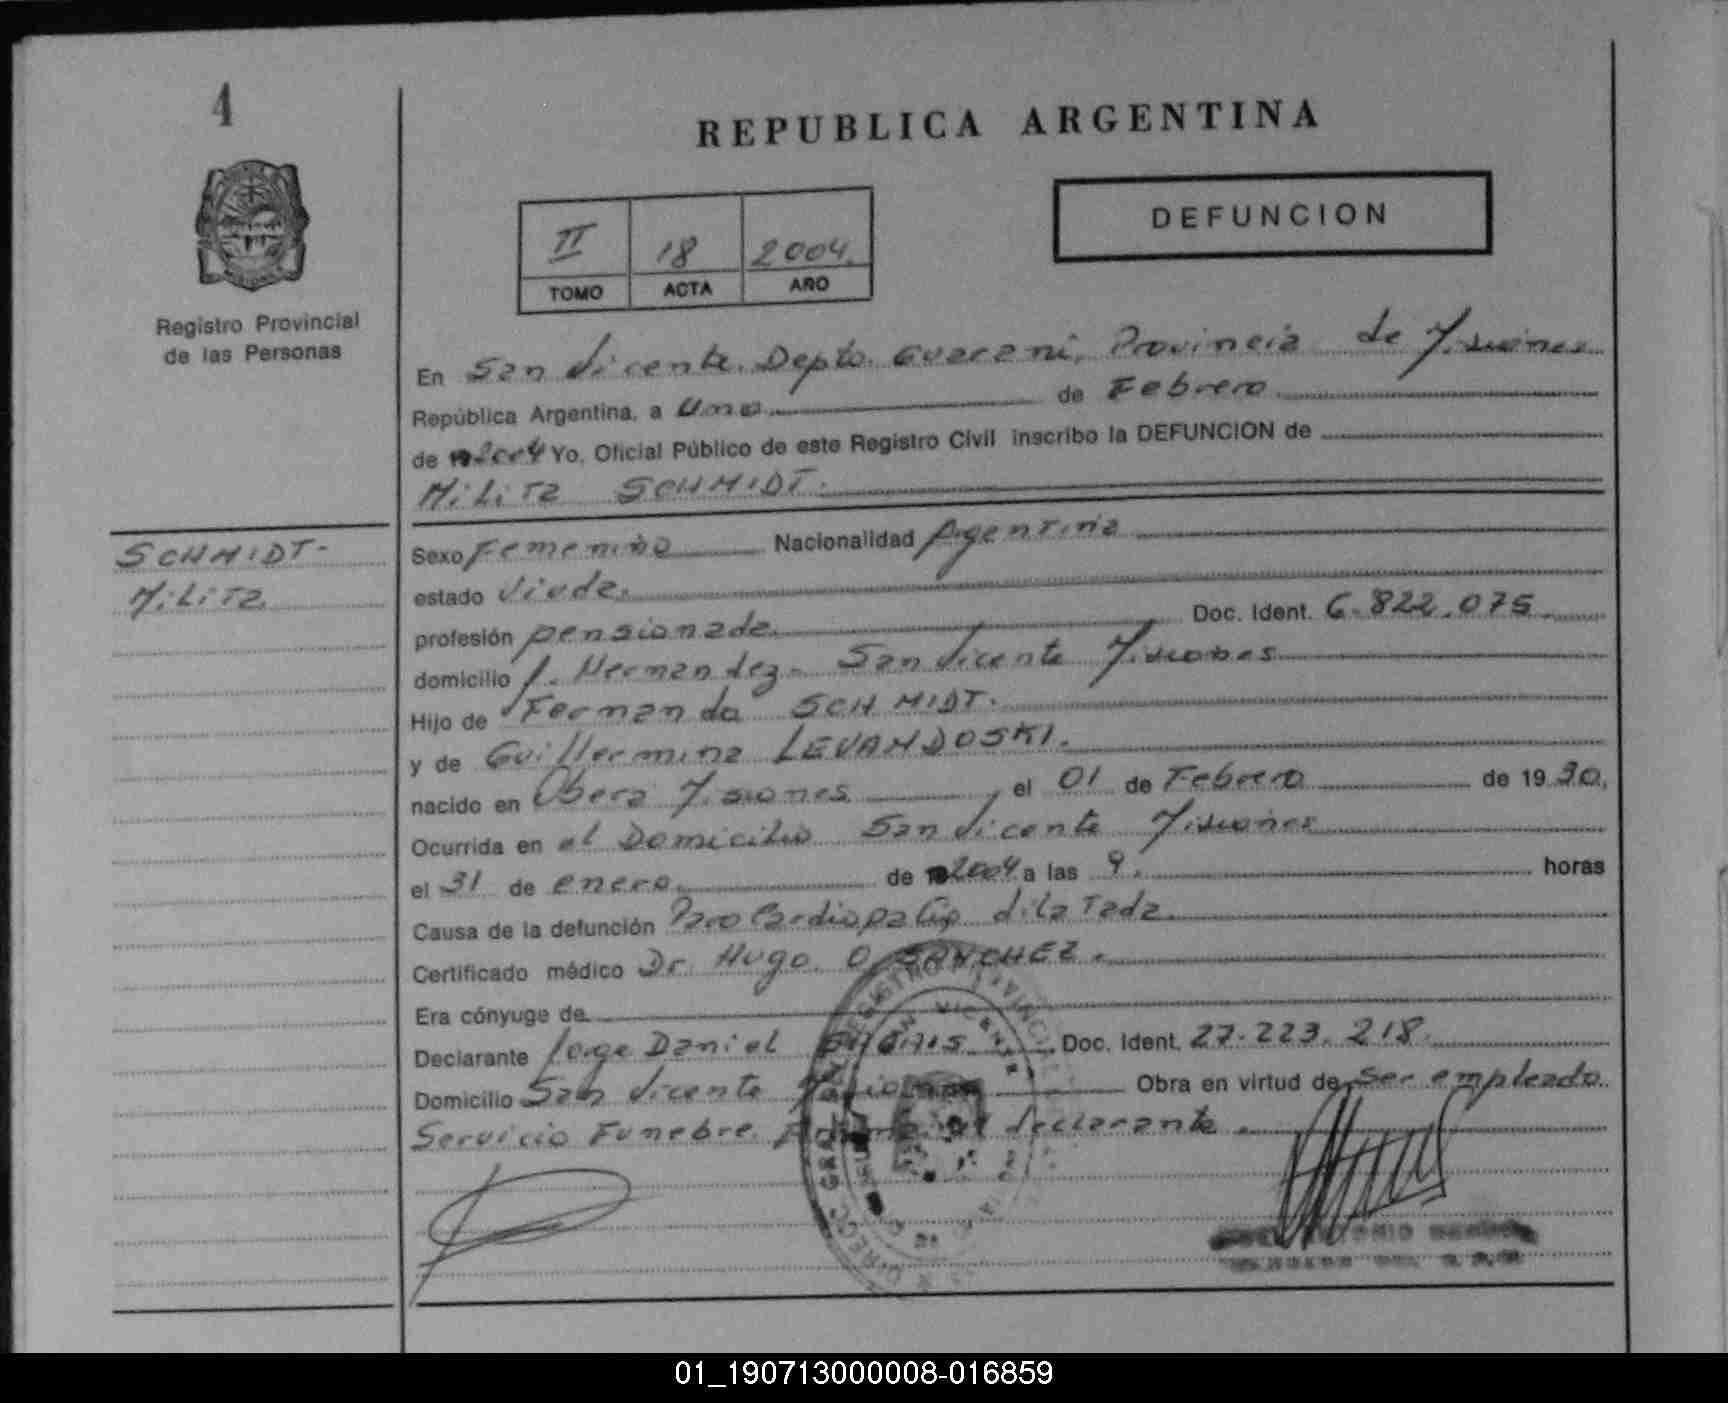 4
REPUBLICA ARGENTINA
DEFUNCION
II 18 2004.
TOMO ACTA AÑO
Registro Provincial
de las Personas
En San Vicente. Depto. Guarani, Provincia de Misiones
República Argentina, a Uno de Febrero
de 2004 Yo, Oficial Público de este Registro Civil inscribo la DEFUNCION de
MiLiTa SCHMIDT.
SCHMIDT-
MiLiTa
Sexo Femenino Nacionalidad Argentina
estado Viuda.
profesión pensionada Doc. Ident. 6.822.075
domicilio J. Hernandez - San Vicente Misiones
Hijo de Fernando SCHMIDT.
y de Guillermina LEVANDOSKI.
nacido en Obera Misiones, el 01 de Febrero de 1930,
Ocurrida en el Domicilio San Vicente Misiones
el 31 de enero de 2004 a las 9. horas
Causa de la defunción Paro Cardiopatia dilaTada.
Certificado médico Dr. Hugo O. SANCHEZ.
Era cónyuge de
Declarante Jorge Daniel Doc. Ident. 27.223.218.
Domicilio San Vicente Misiones Obra en virtud de Ser empleado
Servicio Funebre. declarante.
01_190713000008-016859